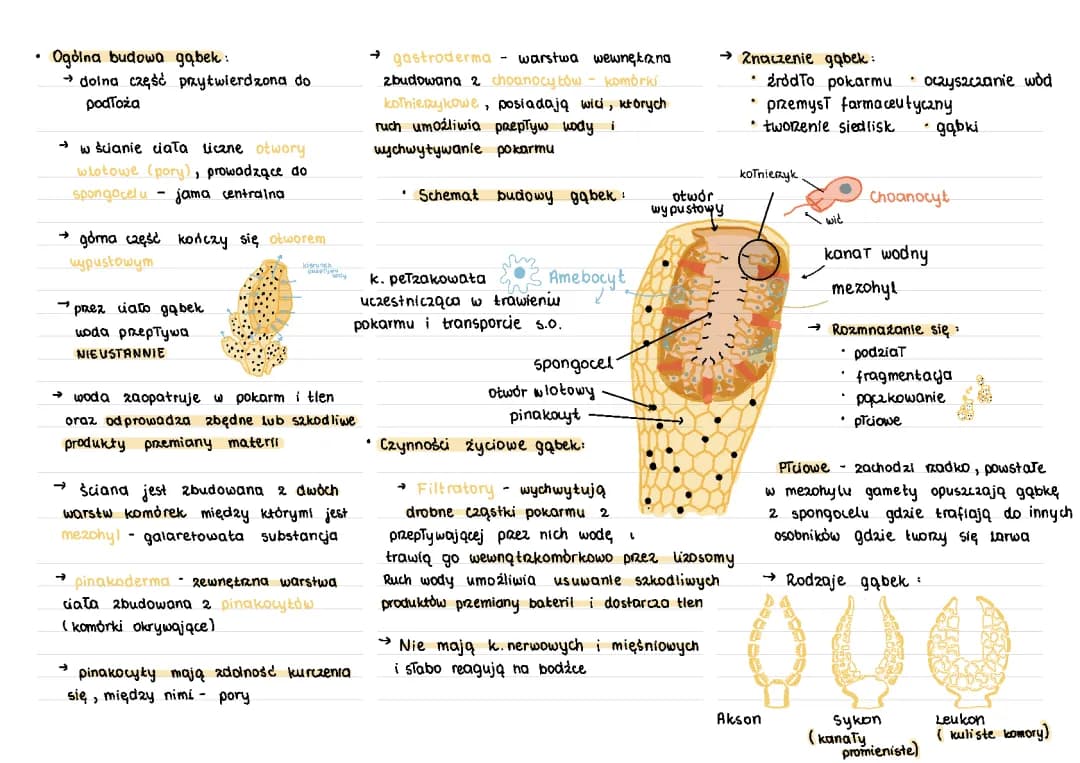 • Ogólna budowa gąbek:
→ dolna część przytwierdzona do
podłoża
→ w ścianie ciała liczne otwory
wlotowe (pory), prowadzące do
spongocelu - jama centralna
→ górna część kończy się otworem
wypustowym
kierunek
przepływu
wody
→ przez ciało gąbek
woda przepływa
NIEUSTANNIE
→ woda zaopatruje w pokarm i tlen
oraz odprowadza zbędne lub szkodliwe
produkty przemiany materii
→ ściana jest zbudowana z dwóch
warstw komórek między którymi jest
mezohyl - galaretowata substancja
→ pinakoderma - zewnętrzna warstwa
ciała zbudowana z pinakocytów
(komórki okrywające)
→ pinakocyty mają zdolność kurczenia
się, między nimi - pory
→ gastroderma - warstwa wewnętrzna
zbudowana z choanocytów - komórki
kołnierzykowe, posiadają wici, których
ruch umożliwia przepływ wody i
wychwytywanie pokarmu
• Schemat budowy gąbek:
otwór
wypustowy
k. pełzakowata
Amebocyt
uczestnicząca w trawieniu
pokarmu i transporcie s.o.
spongocel
otwór wlotowy
pinakocyt
kołnierzyk
Choanocyt
wić
kanał wodny
mezohyl
• Czynności życiowe gąbek:
→ Filtratory - wychwytują
drobne cząstki pokarmu z
przepływającej przez nich wodę i
trawią go wewnątrzkomórkowo przez lizosomy
Ruch wody umożliwia usuwanie szkodliwych
produktów przemiany baterii i dostarcza tlen
→ Nie mają k. nerwowych i mięśniowych
i słabo reagują na bodźce
→ Znaczenie gąbek:
• źródło pokarmu • oczyszczanie wód
• przemysł farmaceutyczny
• tworzenie siedlisk • gąbki
→ Rozmnażanie się:
• podział
• fragmentacja
• pączkowanie
• płciowe
Płciowe - zachodzi rzadko, powstałe
w mezohylu gamety opuszczają gąbkę
z spongocelu gdzie trafiają do innych
osobników gdzie tworzy się larwa
→ Rodzaje gąbek:
Akson
Sykon
(kanały
promieniste)
Leukon
(kuliste komory)